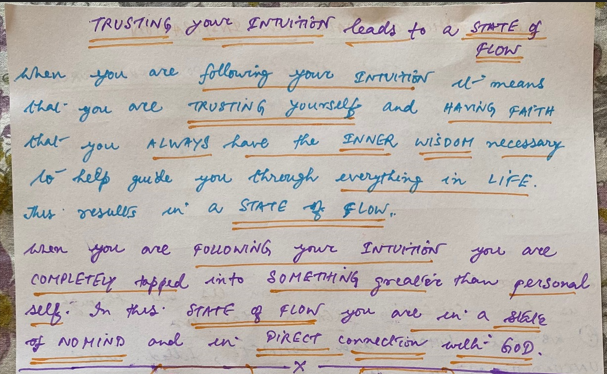 TRUSTING your INTUITION leads to a STATE of
FLOW
When you are following your INTUITION it means
that you are TRUSTING yourself and HAVING FAITH
that you ALWAYS have the INNER WISDOM necessary
to help guide you through everything in LIFE.
This results in a STATE of FLOW..
When you are FOLLOWING your INTUITION you are
COMPLETELY tapped into SOMETHING greater than personal
self. In this STATE of FLOW you are in a state
of NOMIND and in DIRECT connection with GOD.
X